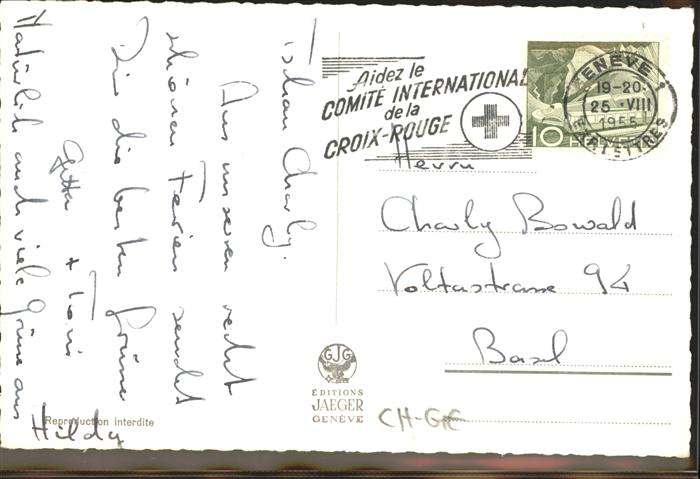 Tschau Charly.
Aus unseren recht
schönen Ferien sendet
Dir die besten Grüsse
+ Toni
Natürlich auch viele Grüsse aus
Hilda
Aidez le
COMITÉ INTERNATIONAL
de la
CROIX-ROUGE
GENÈVE 1
19-20
25 VIII
1955
EXP. LETTRES
10
Herrn
Charly Bowald
Voltastrasse 94
Basel
GJG
EDITIONS
JAEGER
GENÈVE
CH-GE
Reproduction interdite